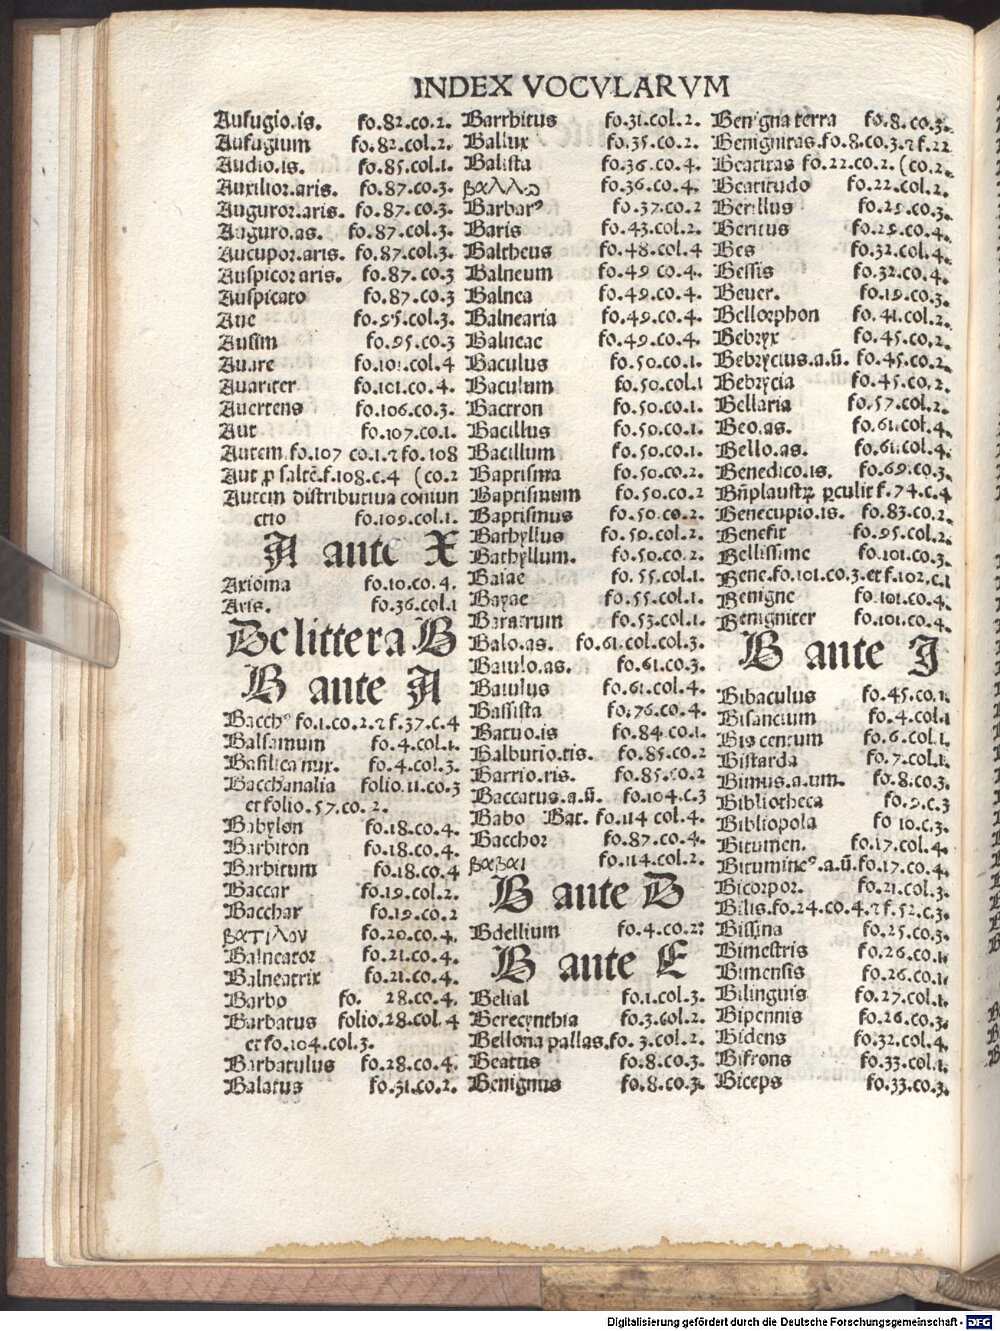 INDEX VOCVLARVM
Aufugio.is. fo.82.co.2.
Aufugium fo.82.col.2.
Audio.is. fo.85.col.1.
Auxilior.aris. fo.87.co.3.
Auguror.aris. fo.87.co.3.
Auguro.as. fo.87.col.3.
Aucupor.aris. fo.87.col.3.
Auspicor aris. fo.87.co.3
Auspicato fo.87.co.3
Aue fo.95.col.3.
Ausim fo.95.co.3
Auare fo.101.col.4
Auariter fo.101.co.4.
Auertens fo.106.co.3.
Aut fo.107.co.1.
Autem.fo.107 co.1.⁊ fo.108
Aut ꝓ saltē.f.108.c.4 (co.2
Autem distributiua coniun
ctio fo.109.col.1.
A ante X
Axioma fo.10.co.4.
Axis. fo.36.col.1
De littera B
B ante A
Bacchꝰ fo.1.co.2.⁊ f.37.c.4
Balsamum fo.4.col.1.
Basilica nux. fo.4.col.3.
Bacchanalia folio.11.co.3
et folio.57.co.2.
Babylon fo.18.co.4.
Barbiton fo.18.co.4.
Barbitum fo.18.co.4
Baccar fo.19.col.2.
Bacchar fo.19.co.2
βατιλον fo.20.co.4.
Balneator fo.21.co.4.
Balneatrix fo.21.co.4.
Barbo fo. 28.co.4.
Barbatus folio.28.col.4
et fo.104.col.3.
Barbatulus fo.28.co.4.
Balatus fo.31.co.2.
Barrhitus fo.31.col.2.
Ballux fo.35.co.2.
Balista fo.36.co.4.
βαλλ fo.36.co.4.
Barbarꝰ fo.37.co.2
Baris fo.43.col.2.
Baltheus fo.48.col.4
Balneum fo.49 co.4.
Balnea fo.49.co.4.
Balnearia fo.49.co.4.
Balneae fo.49.co.4.
Baculus fo.50.co.1.
Baculum fo.50.col.1
Bactron fo.50.co.1.
Bacillus fo.50.co.1.
Bacillum fo.50.co.1.
Baptisma fo.50.co.2.
Baptismum fo.50.co.2
Baptismus fo.50.co.2.
Bathyllus fo.50.col.2.
Bathyllum. fo.50.co.2.
Baiae fo.55.col.1.
Bayae fo.55.col.1.
Baratrum fo.53.col.1.
Balo.as. fo.61.col.col.3.
Baiulo.as. fo.61.co.3.
Baiulus fo.61.col.4.
Bassista fo.76.co.4.
Batuo.is fo.84.co.1.
Balbutio.tis. fo.85.co.2
Barrio.ris. fo.85.co.2
Baccatus.a.ū. fo.104.c.3
Babo Bat. fo.114 col.4.
Bacchor fo.87.co.4.
βαβαι fo.114.col.2.
B ante D
Bdellium fo.4.co.2.
B ante E
Belial fo.1.col.3.
Berecynthia fo.3.col.2.
Bellona pallas.fo.3.col.2.
Beatus fo.8.co.3.
Benignus fo.8.co.3.
Benigna terra fo.8.co.3.
Benignitas.fo.8.co.3.⁊ f.22
Beatitas fo.22.co.2. (co.2.
Beatitudo fo.22.col.2.
Berillus fo.25.co.3.
Beritus fo.29.co.4.
Bes fo.32.col.4.
Bessis fo.32.co.4.
Beuer. fo.19.co.3.
Bellorphon fo.41.col.2.
Bebryx fo.45.co.2.
Bebrycius.a.ū. fo.45.co.2
Bebrycia fo.45.co.2.
Bellaria fo.57.col.2.
Beo.as. fo.61.col.4.
Bello.as. fo.61.col.4.
Benedico.is. fo.69.co.3.
Bn̄plaustꝝ ꝑculit f.74.c.4
Benecupio.is. fo.83.co.2.
Benefit fo.95.col.2.
Bellissime fo.101.co.3.
Bene.fo.101.co.3.et f.102.c.1
Benigne fo.101.co.4.
Benigniter fo.101.co.4.
B ante I
Bibaculus fo.45.co.1.
Bisantium fo.4.col.1
Bis centum fo.6.col.1.
Bistarda fo.7.col.1.
Bimus.a.um. fo.8.co.3.
Bibliotheca fo.9.c.3
Bibliopola fo 10.c.3.
Bitumen. fo.17.col.4.
Bitumineꝰ.a.ū.fo.17.co.4.
Bicorpor. fo.21.col.3.
Bilis.fo.24.co.4.⁊ f.52.c.3.
Bissina fo.25.co.3.
Bimestris fo.26.co.1.
Bimensis fo.26.co.1.
Bilinguis fo.27.col.1.
Bipennis fo.26.co.3.
Bidens fo.32.col.4.
Bifrons fo.33.col.1.
Biceps fo.33.co.3.
Digitalisierung gefördert durch die Deutsche Forschungsgemeinschaft - DFG